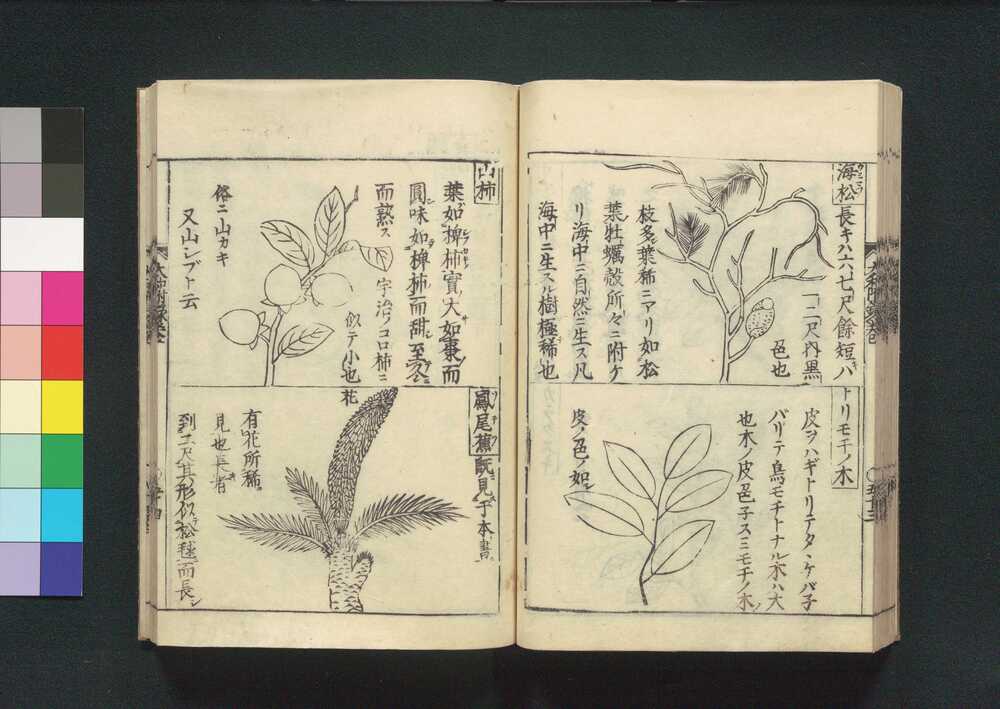 海松
長キハ六七尺餘短ハ
一二尺内黒
色也
枝多葉稀ニアリ如松
葉牡蠣殻所々ニ附ケ
リ海中ニ自然ニ生ス凡
海中ニ生スル樹極稀也
トリモチノ木
皮ヲハギトリテタヽケバ子
バリテ鳥モチトナル木ハ大
也木ノ皮色子スミモチノ木ノ
皮ノ色ノ如シ
山柿
葉如椑柿實大如棗而
圓味如椑柿而甜至冬
而熟ス 宇治ノコロ柿ニ
似テ小也
俗ニ山カキ
又山シブト云
鳳尾蕉
既見于本書
花
有花所稀
見也長者
到二尺其形似松毬而長シ